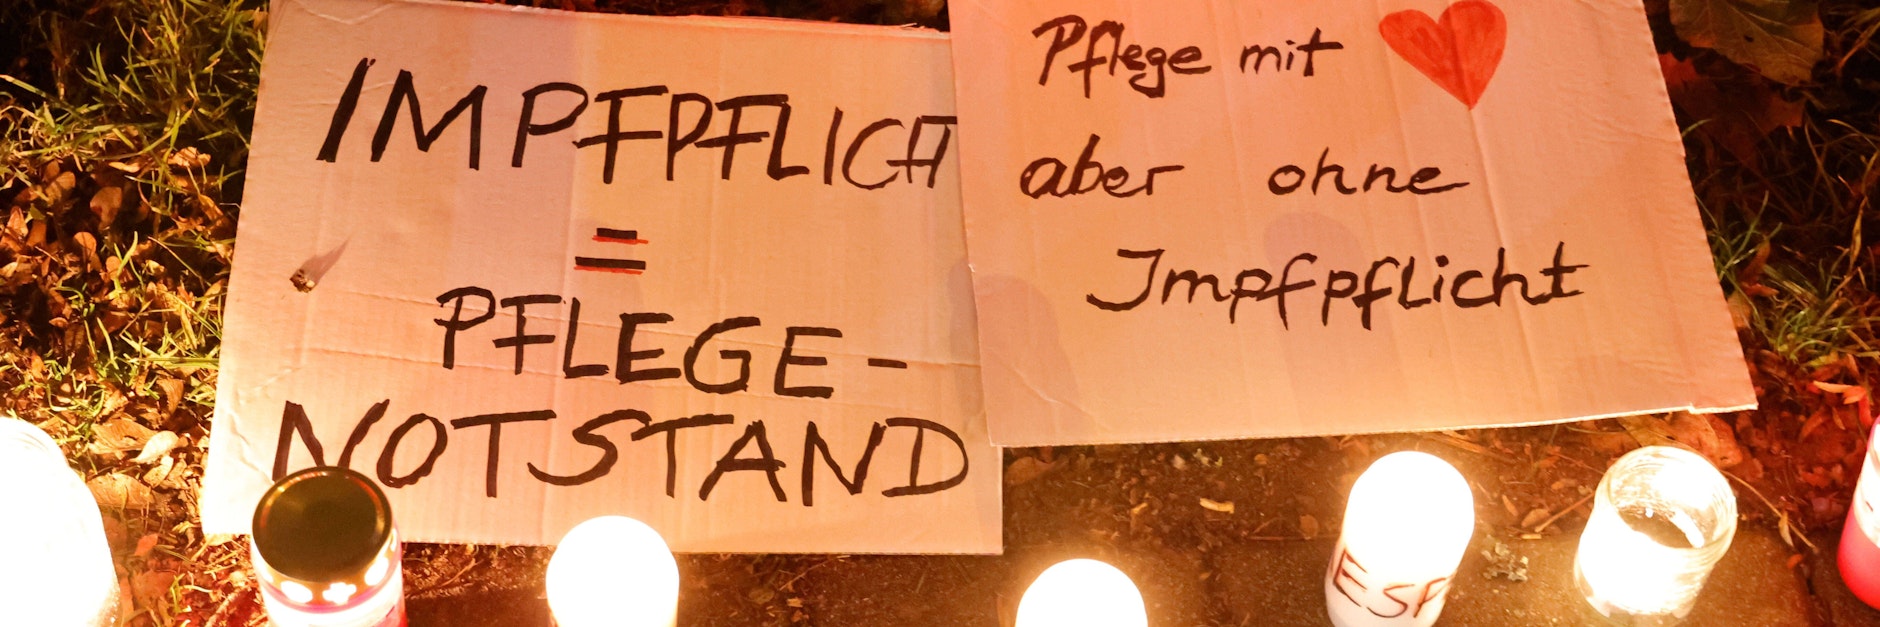 IMPFPFLICHT
=
PFLEGE-
NOTSTAND
Pflege mit
aber ohne
Impfpflicht